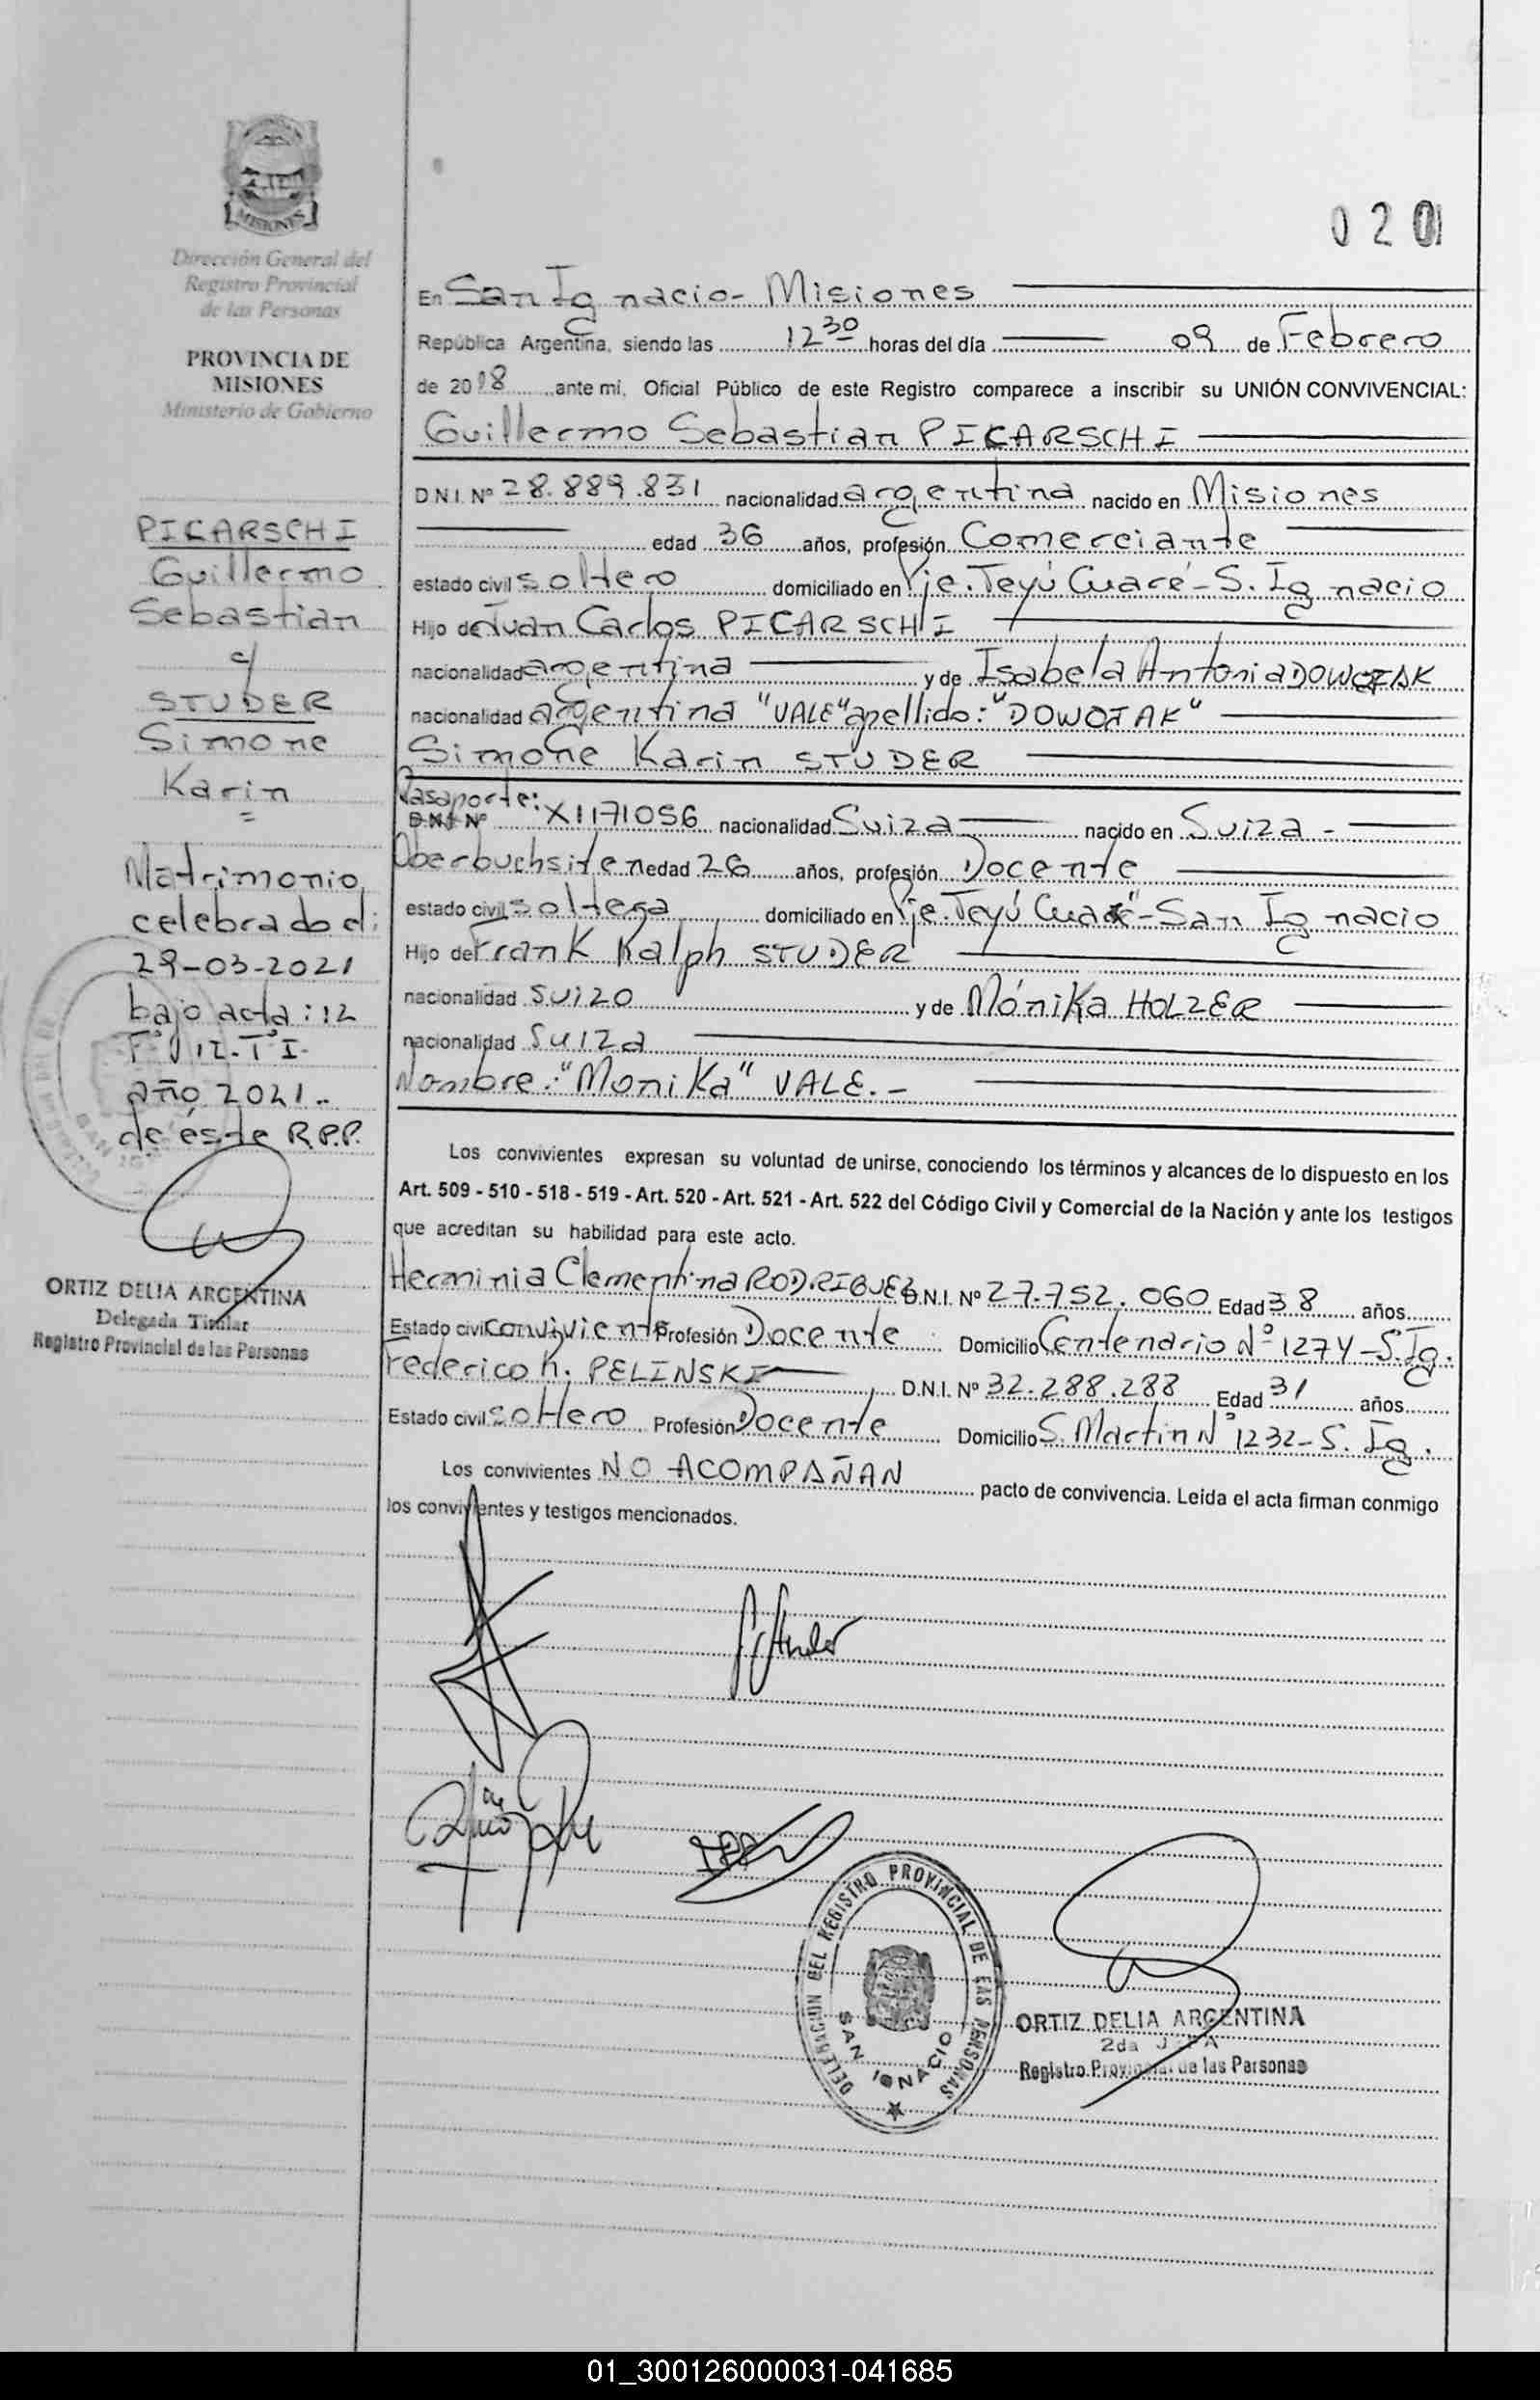 MISIONES
Dirección General del
Registro Provincial
de las Personas
PROVINCIA DE
MISIONES
Ministerio de Gobierno
PICARSCHI
Guillermo
Sebastian
c/
STUDER
Simone
Karin
=
Matrimonio
celebrado el:
29-03-2021
bajo acta: 12
Fº 012-Tº I-
año 2021..
de éste R.P.P.
ORTIZ DELIA ARGENTINA
Delegada Titular
Registro Provincial de las Personas
020
En San Ignacio- Misiones
República Argentina, siendo las 12 30 horas del día 09 de Febrero
de 2018 ante mí, Oficial Público de este Registro comparece a inscribir su UNIÓN CONVIVENCIAL:
Guillermo Sebastian PICARSCHI
D.N.I. Nº 28.889.831 nacionalidad argentina nacido en Misiones
edad 36 años, profesión Comerciante
estado civil soltero domiciliado en Pje. Teyú Cuaré-S. Ignacio
Hijo de Juan Carlos PICARSCHI
nacionalidad argentina y de Isabela Antonia
nacionalidad argentina "VALE" apellido: "DOWOJAK"
Simone Karin STUDER
Pasaporte:
D.N.I. Nº X1171056 nacionalidad Suiza nacido en Suiza -
Oberbuchsiten edad 26 años, profesión Docente
estado civil soltera domiciliado en Pje. Teyú Cuaré-San Ignacio
Hijo de Frank Ralph STUDER
nacionalidad suizo y de Mónika HOLZER
nacionalidad suiza
Nombre: "Monika" VALE.-
Los convivientes expresan su voluntad de unirse, conociendo los términos y alcances de lo dispuesto en los
Art. 509 - 510 - 518 - 519 - Art. 520 - Art. 521 - Art. 522 del Código Civil y Comercial de la Nación y ante los testigos
que acreditan su habilidad para este acto.
Herminia Clementina RODRIGUEZ D.N.I. Nº 27.752.060 Edad 38 años
Estado civil conviviente Profesión Docente Domicilio Centenario Nº 1274-S.Ig.
Federico h. PELINSKI D.N.I. Nº 32.288.288 Edad 31 años
Estado civil soltero Profesión Docente Domicilio S. Martin Nº 1232-S. Ig.
Los convivientes NO ACOMPAÑAN pacto de convivencia. Leída el acta firman conmigo
los convivientes y testigos mencionados.
DELEGACION DEL REGISTRO PROVINCIAL DE LAS PERSONAS
SAN IGNACIO
ORTIZ DELIA ARGENTINA
2da JEFA
Registro Provincial de las Personas
01_300126000031-041685